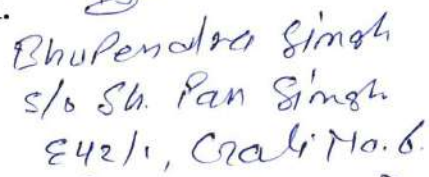 Bhupendra Singh
S/o Sh. Pan Singh
E42/1, Gali No. 6.